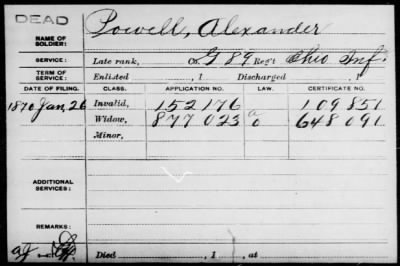 DEAD
NAME OF SOLDIER: Powell, Alexander
SERVICE: Late rank, Co. G 89 Reg't Ohio Inf.
TERM OF SERVICE: Enlisted , 1 Discharged , 1
DATE OF FILING. CLASS. APPLICATION NO. LAW. CERTIFICATE NO.
1870 Jan, 26 Invalid, 152 176 109 851
Widow, 877 023 648 091
Minor,
ADDITIONAL SERVICES:
REMARKS:
Died , 1 , at